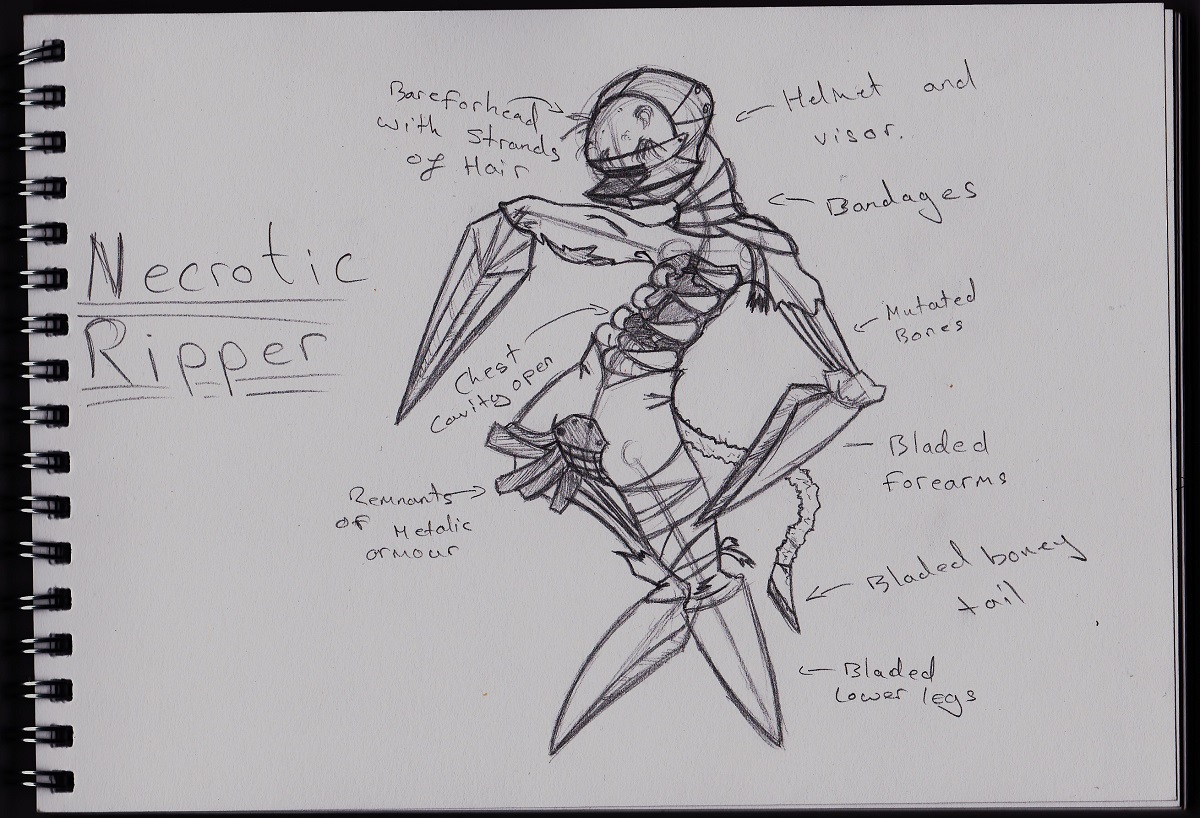 Necrotic
Ripper
Bareforhead
with Strands
of Hair
Helmet and
visor.
Bandages
Mutated
Bones
Chest
cavity open
Bladed
forearms
Remnants
of Metalic
armour
Bladed boney
tail
Bladed
lower legs